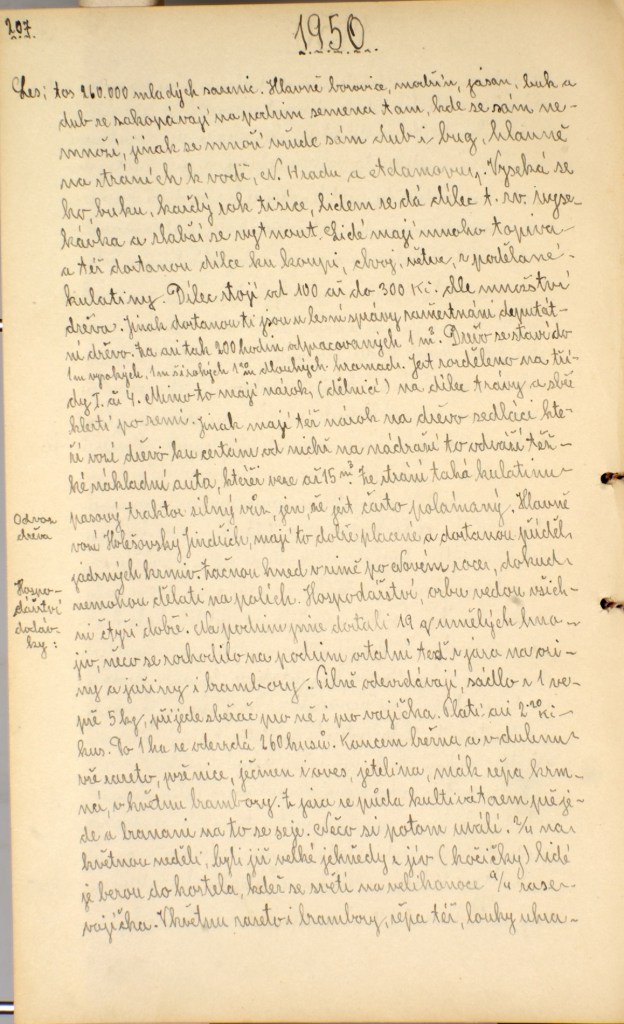 207.
1950.
Les; tas 260.000 mladých sazenic. Hlavně borovice, modřín, jasan, buk a
dub se zakopávají na podzim semena tam, kde se sám ne-
množí, jinak se množí všude sám dub i bug, hlavně
na stráních k vodě, N. Hradu a Adamovu. Vyseká se
ho, buku, každý rok tisíce, lidem se dá dílec t. zv. vyse-
kávka a slabší se vytnout. Lidé mají mnoho topiva
a též dostanou dílce ku koupi, chvoj, větve, z podělané
kulatiny. Dílec stojí od 100 až do 300 Kč. dle množství
dřeva. Jinak dostanou ti jsou u lesní správy zaměstnáni deputát-
ní dřevo. za asi tak 200 hodin odpracovaných 1 m³. Dřívo se staví do
1m vysokých, 1m širokých 1m dlouhých hromad. Jest rozděleno na tří-
dy I. až 4. Mimo to mají nárok, (dělníci) na dílec trávy a sbě
klestí po zemi. Jinak mají též nárok na dřevo sedláci kte-
ří vozí dřevo ku cestám od nichž na nádraží to odváží těž-
ké nákladní auta, kteří veze až 15 m³. Ze strání tahá kulatinu
pasový traktor silný vůz, jen, že jest často polámaný. Hlavně
vozí Holešovský Jindřich, mají to dobře placené a dostanou příděl
jadrných krmiv. Začnou hned v zimě po Novém roce, dokud
nemohou dělati na polích. Hospodářství, orbu vedou všich-
ni čtyři dobře. Na podzim dostali 19 q umělých hno-
jiv, neco se rozhodilo na podzim ostatní též z jara na ozi-
my a jařiny i brambory. Pilně odevzdávají, sádlo z 1 ve-
pře 5 kg, přijede sběrač pro ně i pro vajíčka. Platí asi 2.20 Kč
kus. Po 1 ha se odevzdá 260 kusů. Koncem března a v dubnu
vše zaseto, pšenice, ječmen i oves, jetelina, mák řepa krm-
ná, v květnu brambory. Z jara se půda kultivátorem přeje-
de a branami na to se seje. Něco si potom uválí. 2/4 na
květnou neděli, byli již velké jehnědy z jív (kočičky) lidé
je berou do kostela, kdež se světí na velikonoce 9/4 zase
vajíčka. V květnu zaseto i brambory, řepa též, louky uhra-
Odvoz
dřeva
Hospo-
dářství
dodáv-
ky: